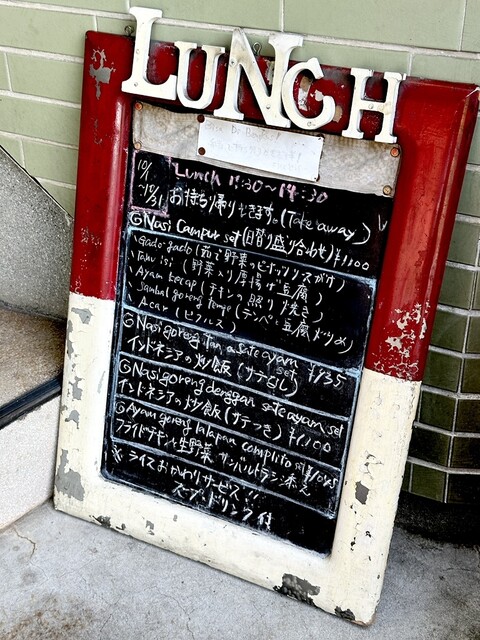 LUNCH
10/1 ~10/31
Lunch 11:30~14:30
お持ち帰りできます。(Take away)
Ⓖ Nasi Campur set (日替り盛り合わせ) ¥1,100
Gado gado (茹で野菜のピーナッツソースがけ)
Tahu isi (野菜入り厚揚げ豆腐)
Ayam kecap (チキンの照り焼き)
Sambal goreng tempe (テンペと豆腐炒め)
Acar (ピクルス)
Ⓖ Nasi goreng tanpa sate ayam set
インドネシアの炒飯 (サテなし) ¥935
Ⓖ Nasi goreng denggan sate ayam set
インドネシアの炒飯 (サテつき) ¥1,100
Ⓖ Ayam goreng lalapan complito set ¥1045
フライドチキンと生野菜 サンバルトラシ添え
※ ライスおかわりサービス!!
スープ・ドリンク付